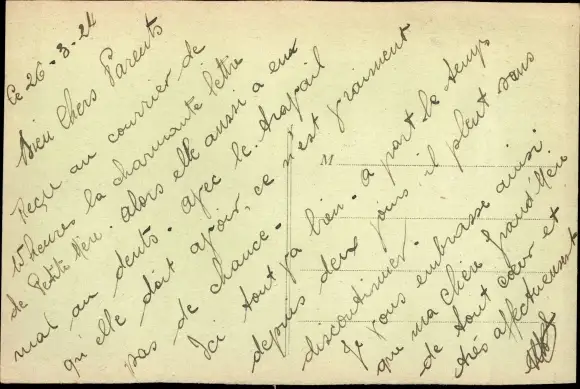 Le 26.3.24
Bien Chers Parents
Reçu au courrier de
15 heures la charmante lettre
de Petite Mère. Alors elle aussi a eu
mal au dents. avec le travail
qu'elle doit avoir, ce n'est vraiment
pas de chance.
Ici tout va bien. a part le temps
depuis deux jours il pleut sans
discontinuer.
Je vous embrasse ainsi
que ma Chère Grand'Mère
de tout cœur et
très affectueusement
M